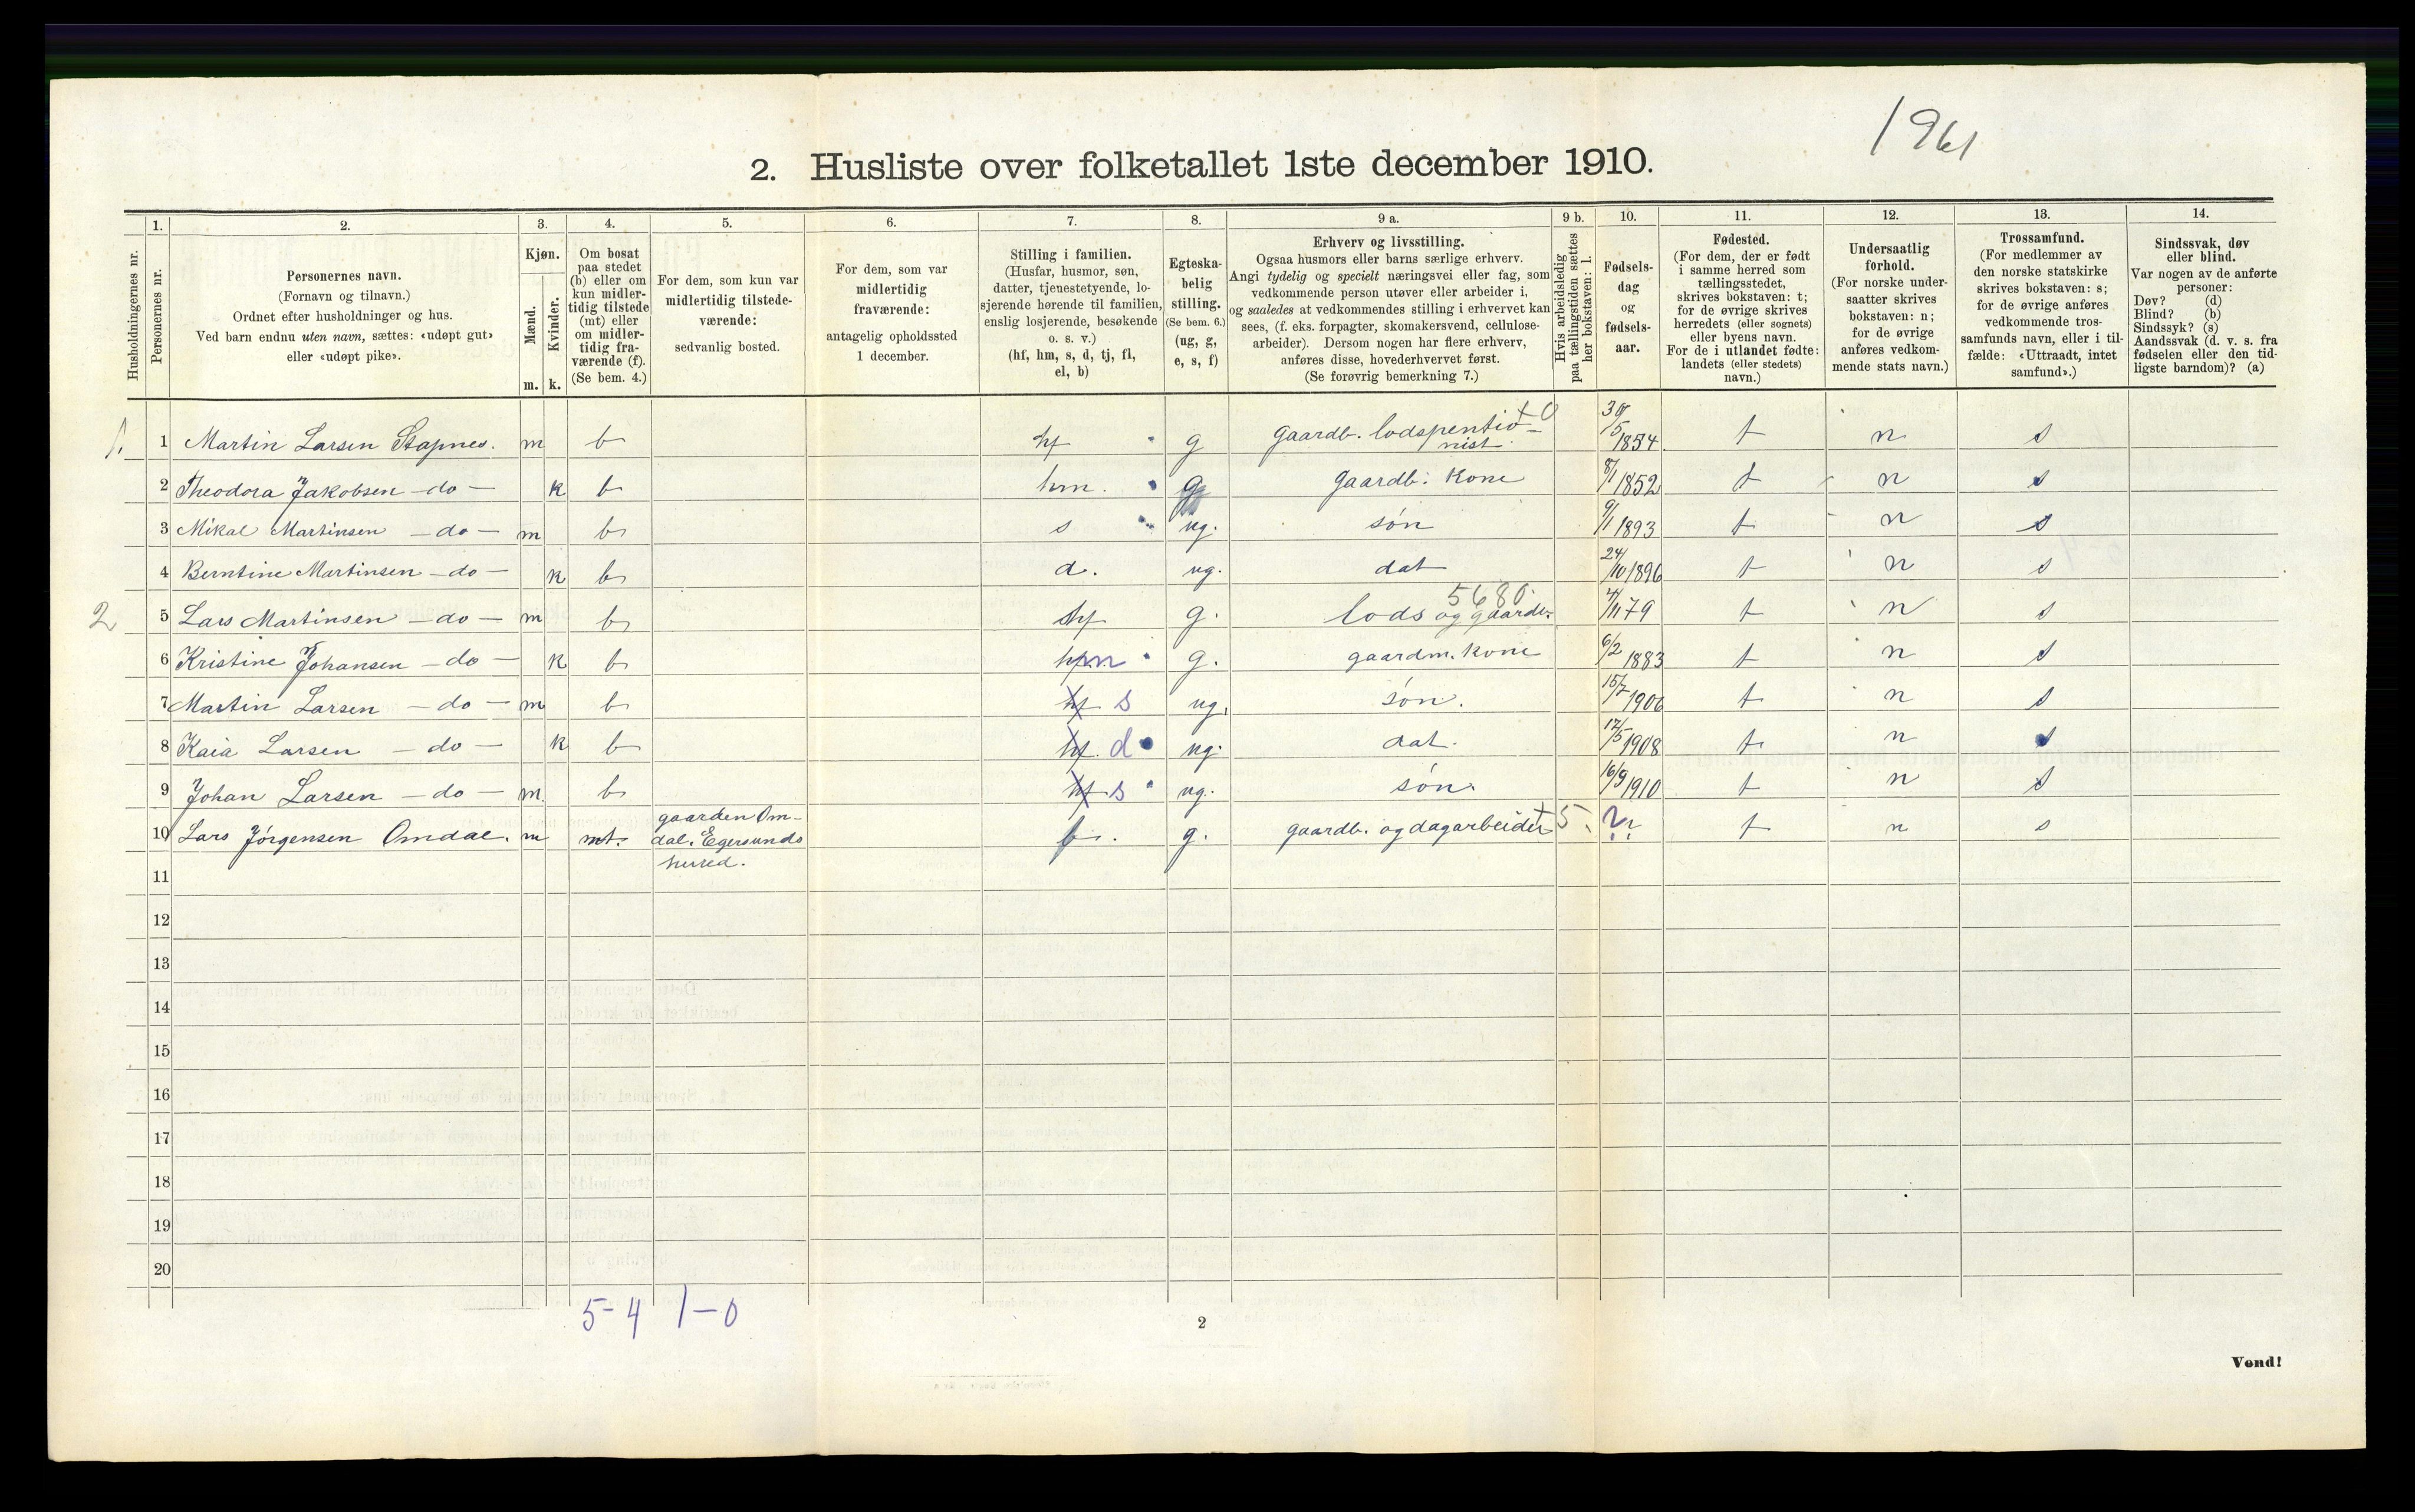 1961
2. Husliste over folketallet 1ste december 1910.
Husholdningernes nr.
1.
Personernes nr.
2.
Personernes navn.
(Fornavn og tilnavn.)
Ordnet efter husholdninger og hus.
Ved barn endnu uten navn, sættes: «udøpt gut»
eller «udøpt pike».
3.
Kjøn.
Mænd.
Kvinder.
m. k.
4.
Om bosat
paa stedet
(b) eller om
kun midler-
tidig tilstede
(mt) eller
om midler-
tidig fra-
værende (f).
(Se bem. 4.)
5.
For dem, som kun var
midlertidig tilstede-
værende:
sedvanlig bosted.
6.
For dem, som var
midlertidig
fraværende:
antagelig opholdssted
1 december.
7.
Stilling i familien.
(Husfar, husmor, søn,
datter, tjenestetyende, lo-
sjerende hørende til familien,
enslig losjerende, besøkende
o. s. v.)
(hf, hm, s, d, tj, fl,
el, b)
8.
Egteska-
belig
stilling.
(Se bem. 6.)
(ug, g,
e, s, f)
9 a.
Erhverv og livsstilling.
Ogsaa husmors eller barns særlige erhverv.
Angi tydelig og specielt næringsvei eller fag, som
vedkommende person utøver eller arbeider i,
og saaledes at vedkommendes stilling i erhvervet kan
sees, (f. eks. forpagter, skomakersvend, cellulose-
arbeider). Dersom nogen har flere erhverv,
anføres disse, hovederhvervet først.
(Se forøvrig bemerkning 7.)
9 b.
Hvis arbeidsledig
paa tællingstiden sættes
her bokstaven: l.
10.
Fødsels-
dag
og
fødsels-
aar.
11.
Fødested.
(For dem, der er født
i samme herred som
tællingsstedet,
skrives bokstaven: t;
for de øvrige skrives
herredets (eller sognets)
eller byens navn.
For de i utlandet fødte:
landets (eller stedets)
navn.)
12.
Undersaatlig
forhold.
(For norske under-
saatter skrives
bokstaven: n;
for de øvrige
anføres vedkom-
mende stats navn.)
13.
Trossamfund.
(For medlemmer av
den norske statskirke
skrives bokstaven: s;
for de øvrige anføres
vedkommende tros-
samfunds navn, eller i til-
fælde: «Uttraadt, intet
samfund».)
14.
Sindssvak, døv
eller blind.
Var nogen av de anførte
personer:
Døv? (d)
Blind? (b)
Sindssyk? (s)
Aandssvak (d. v. s. fra
fødselen eller den tid-
ligste barndom)? (a)
1. 1 Martin Larsen Stapnes. m b hf g gaardb. lodspentio- + 0
nist 30/5 1854 t n s
2 Theodora Jakobsen - do - k b hm. g gaardb. Kone 8/1 1852 t n s
3 Mikal Martinsen - do - m b s ug. søn 9/1 1893 t n s
4 Berntine Martinsen - do - k b d. ug. dat 24/10 1896 t n s
5680
2 5 Lars Martinsen - do - m b hf g. lods og gaardb. 4/11 79 t n s
6 Kristine Johansen - do - k b hm g. gaardm. Kone 6/2 1883 t n s
7 Martin Larsen - do - m b hf s ug. søn. 15/7 1906 t n s
8 Kaia Larsen - do - k b hf. d ug. dat. 17/5 1908 t n s
9 Johan Larsen - do - m. b hf s ug. søn. 16/9 1910 t n s
10 Lars Jörgensen Omdal. m mt. gaarden Om-
dal. Egersunds
herred. b. g. gaardb. og dagarbeider + 5. ?? t n s
11
12
13
14
15
16
17
18
19
20
5-4 1-0
2
Vend!